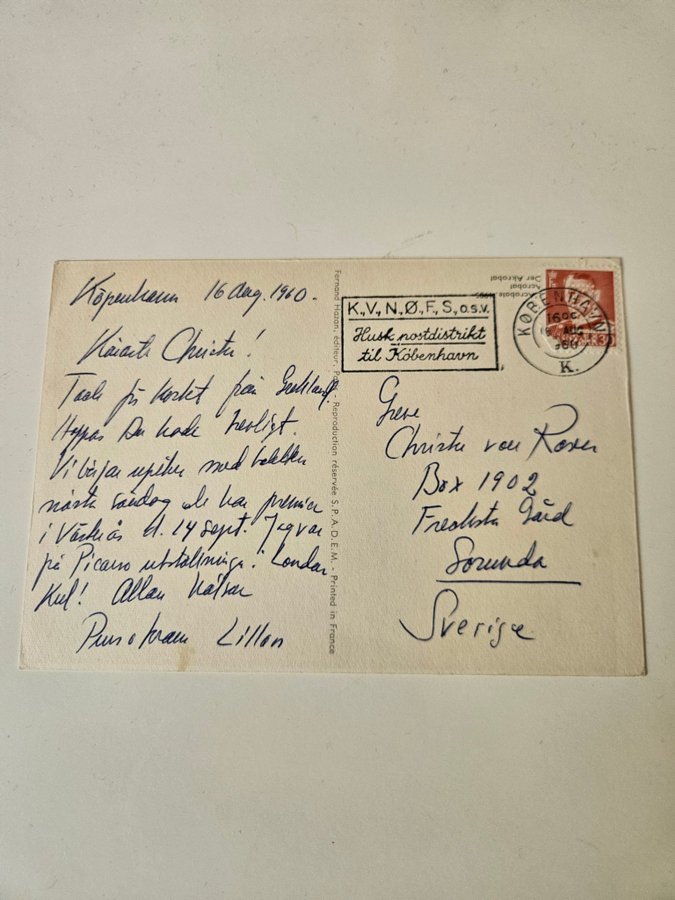 Köpenhamn 16 Aug. 1960.
Käraste Christer!
Tack för kortet från Grekland.
Hoppas Du hade härligt.
Vi börjar repetera med baletten
nästa söndag och har premiär
i Västerås d. 14 sept. Jag var
på Picasso utställningen i London
Kul! Allan hälsar
Puss o kram Lillan
Fernand Hazan, éditeur, Paris. Reproduction réservée S.P.A.D.E.M. - Printed in France
Acrobate
Acrobat
Der Akrobat
K.,V.,N.,Ø.,F.,S., o.s.v.
Husk postdistrikt
til København
KØBENHAVN
AUG
K.
Greve
Christer von Rosen
Box 1902
Fredsta Gård
Sorunda
Sverige